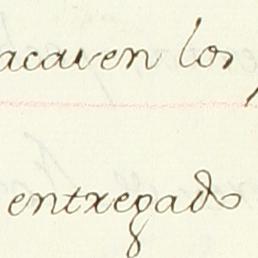 acaven los
entregado